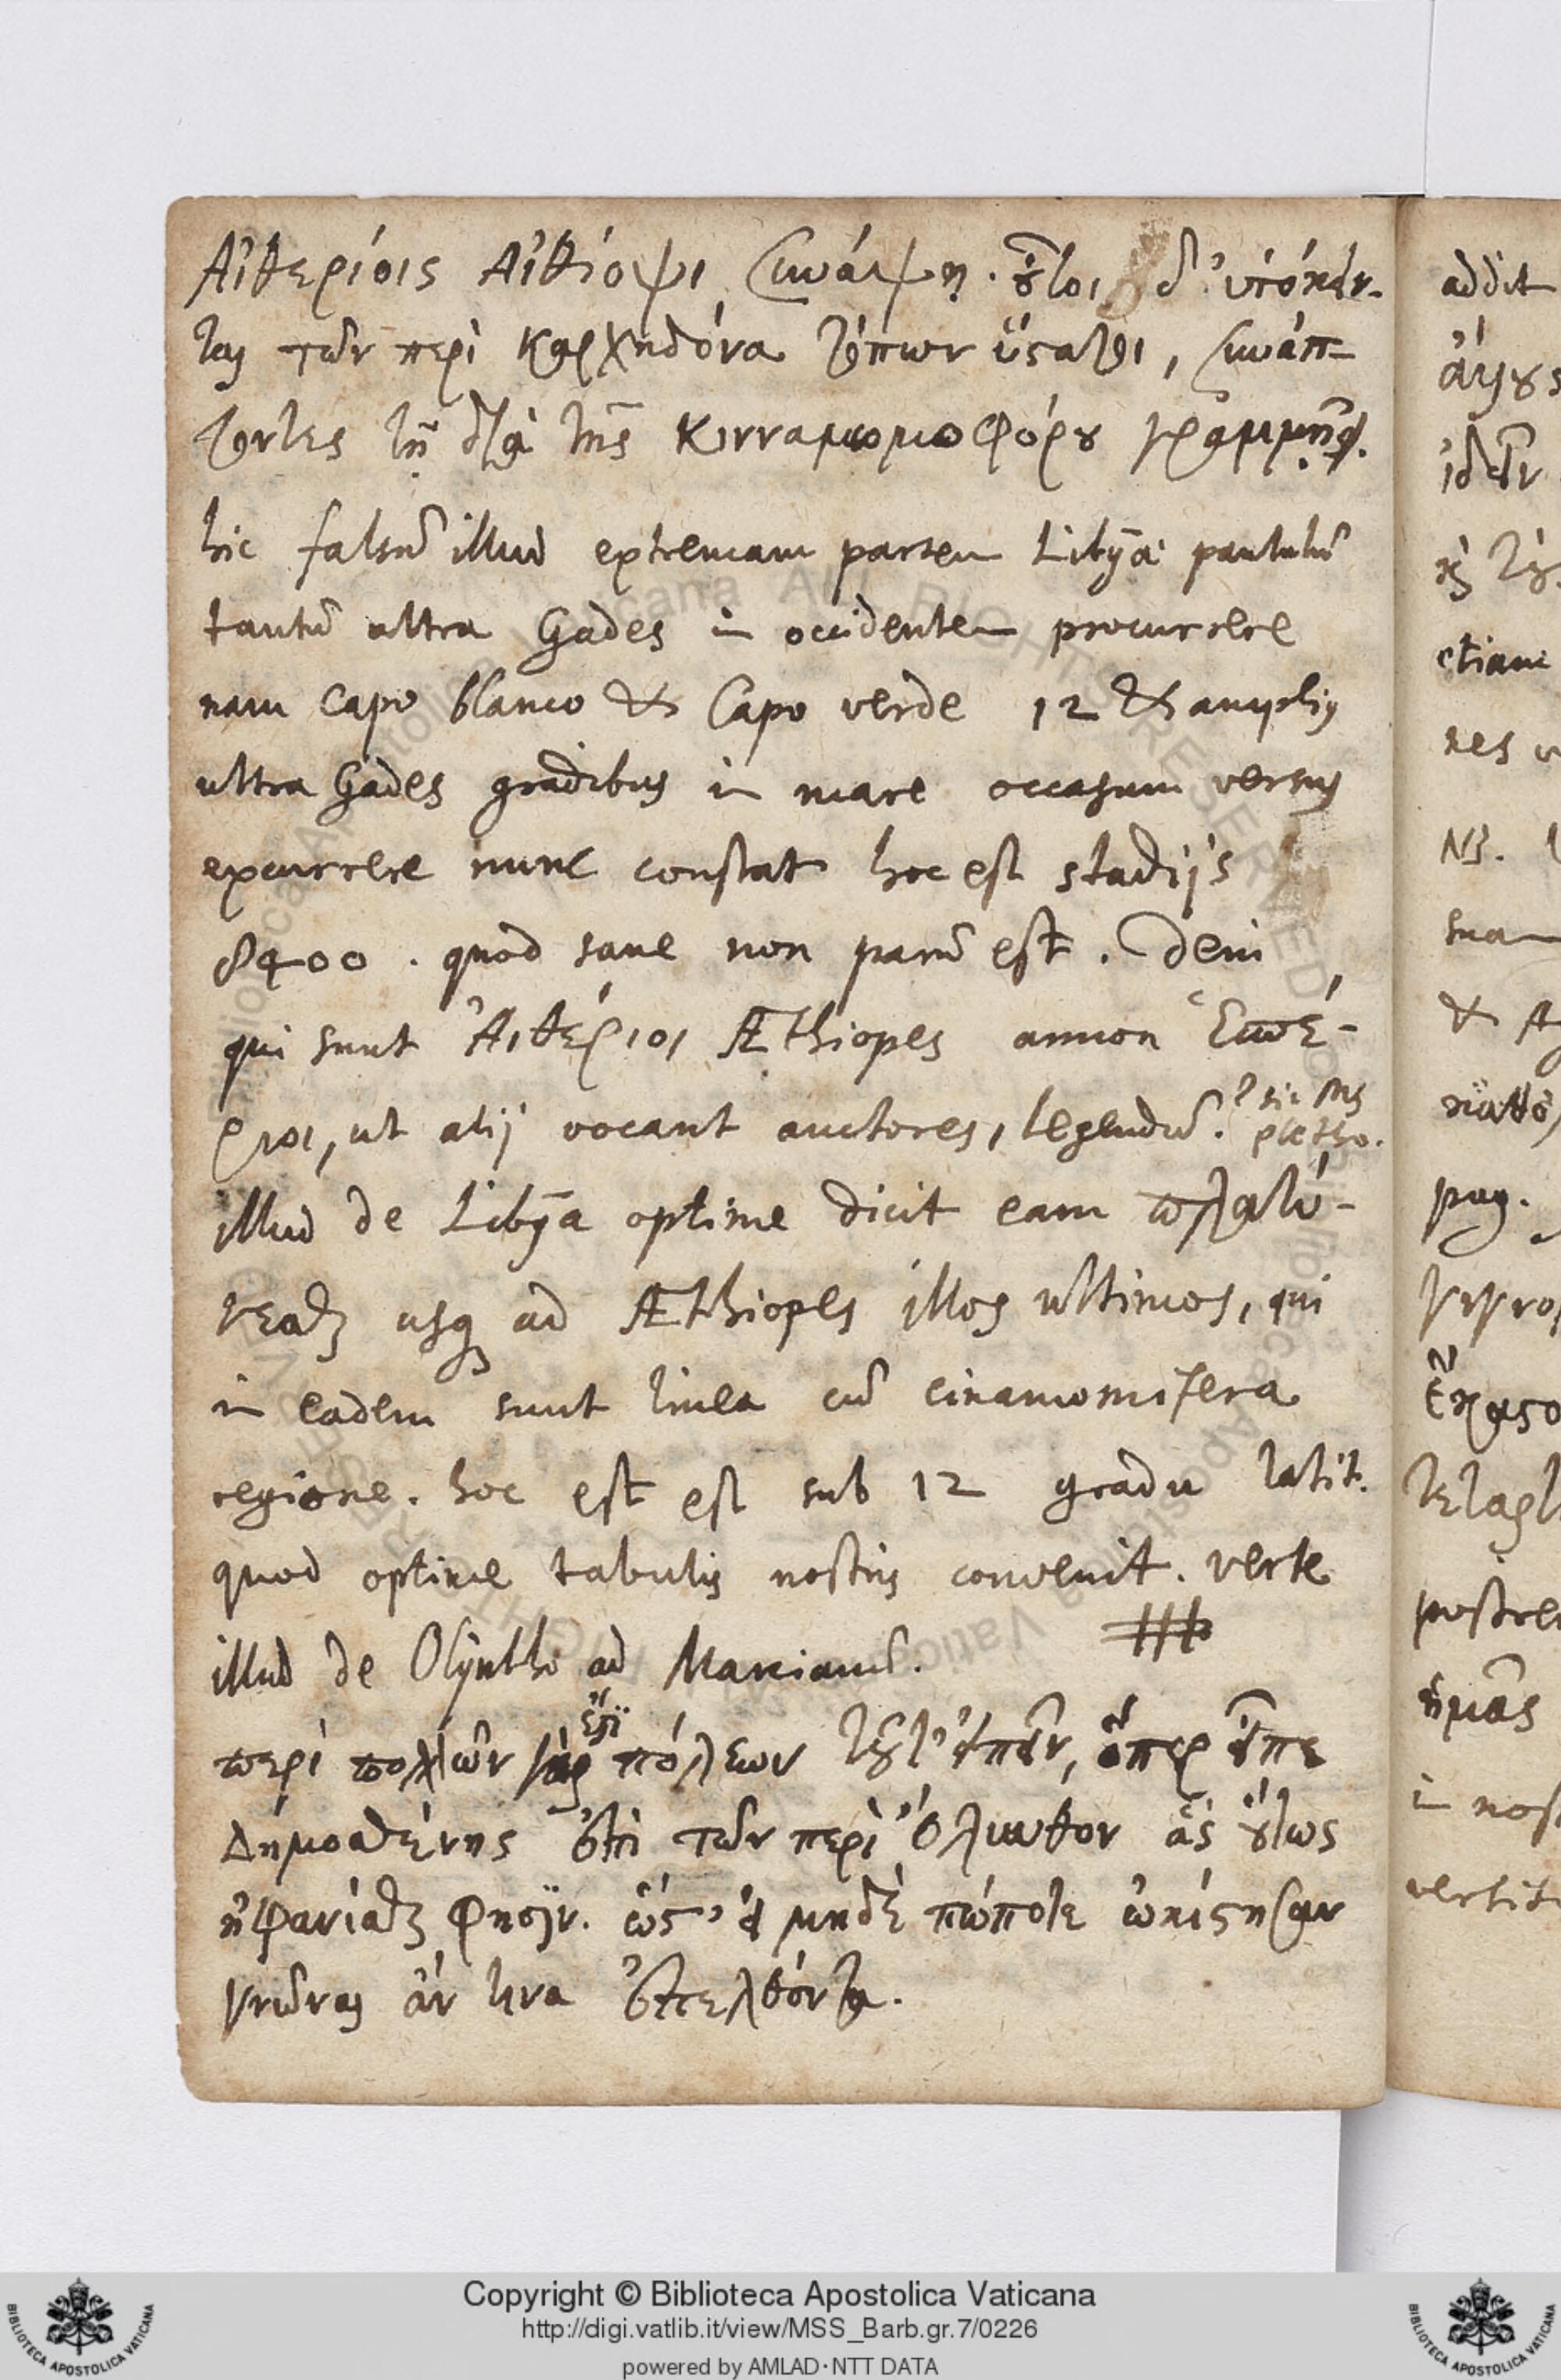 Αἰθερίοις Αἰθίοψι συνάψῃ. οὗτοι δ' ὑπόκειν-
ται τῶν περὶ Καρχηδόνα τόπων ὕστατοι, συνάπ-
τοντες τῇ διὰ τῆς κινναμωμοφόρου γραμμῇ.
hic falsũ illud extremam partem Libyæ paululũ
tantũ ultra Gades in occidentem procurrere
nam Capo blanco & Capo verde 12 & amplius
ultra Gades gradibus in mare occasum versus
excurrere nunc constat hoc est stadijs
8400. quod sane non parũ est. Dein
qui sunt Ἀιθέριοι Æthiopes annon Ἑσπέ-
ριοι, ut alij vocant auctores, legendũ. ? sic Ms
pletho.
illud de Libya optime dicit eam πλατύ-
νεσθαι usq ad Æthiopes illos ultimos, qui
in eadem sunt linea cũ cinamomifera
regione. hoc est est sub 12 gradu latit.
quod optime tabulis nostris convenit. verte
illud de Olyntho ad Marcianũ.
περὶ πολλῶν γὰρ ἔστι πόλεων τοῦτ' εἰπεῖν, ὅπερ εἶπε
Δημοσθένης ἐπὶ τῶν περὶ Ὄλυνθον ἃς οὕτως
ἠφανίσθαι φησὶν. ὥστ' εἰ μηδὲ πώποτε ᾠκίσθησαν
γνῶναι ἄν τινα ἐπελθόντα.
addit
ἰδεῖν
etiam
nes
NB.
sua
&
pag.
postre
ἡμᾶς
in nos
vertit
Copyright © Biblioteca Apostolica Vaticana
http://digi.vatlib.it/view/MSS_Barb.gr.7/0226
powered by AMLAD·NTT DATA
BIBLIOTECA APOSTOLICA VATICANA
BIBLIOTECA APOSTOLICA VATICANA